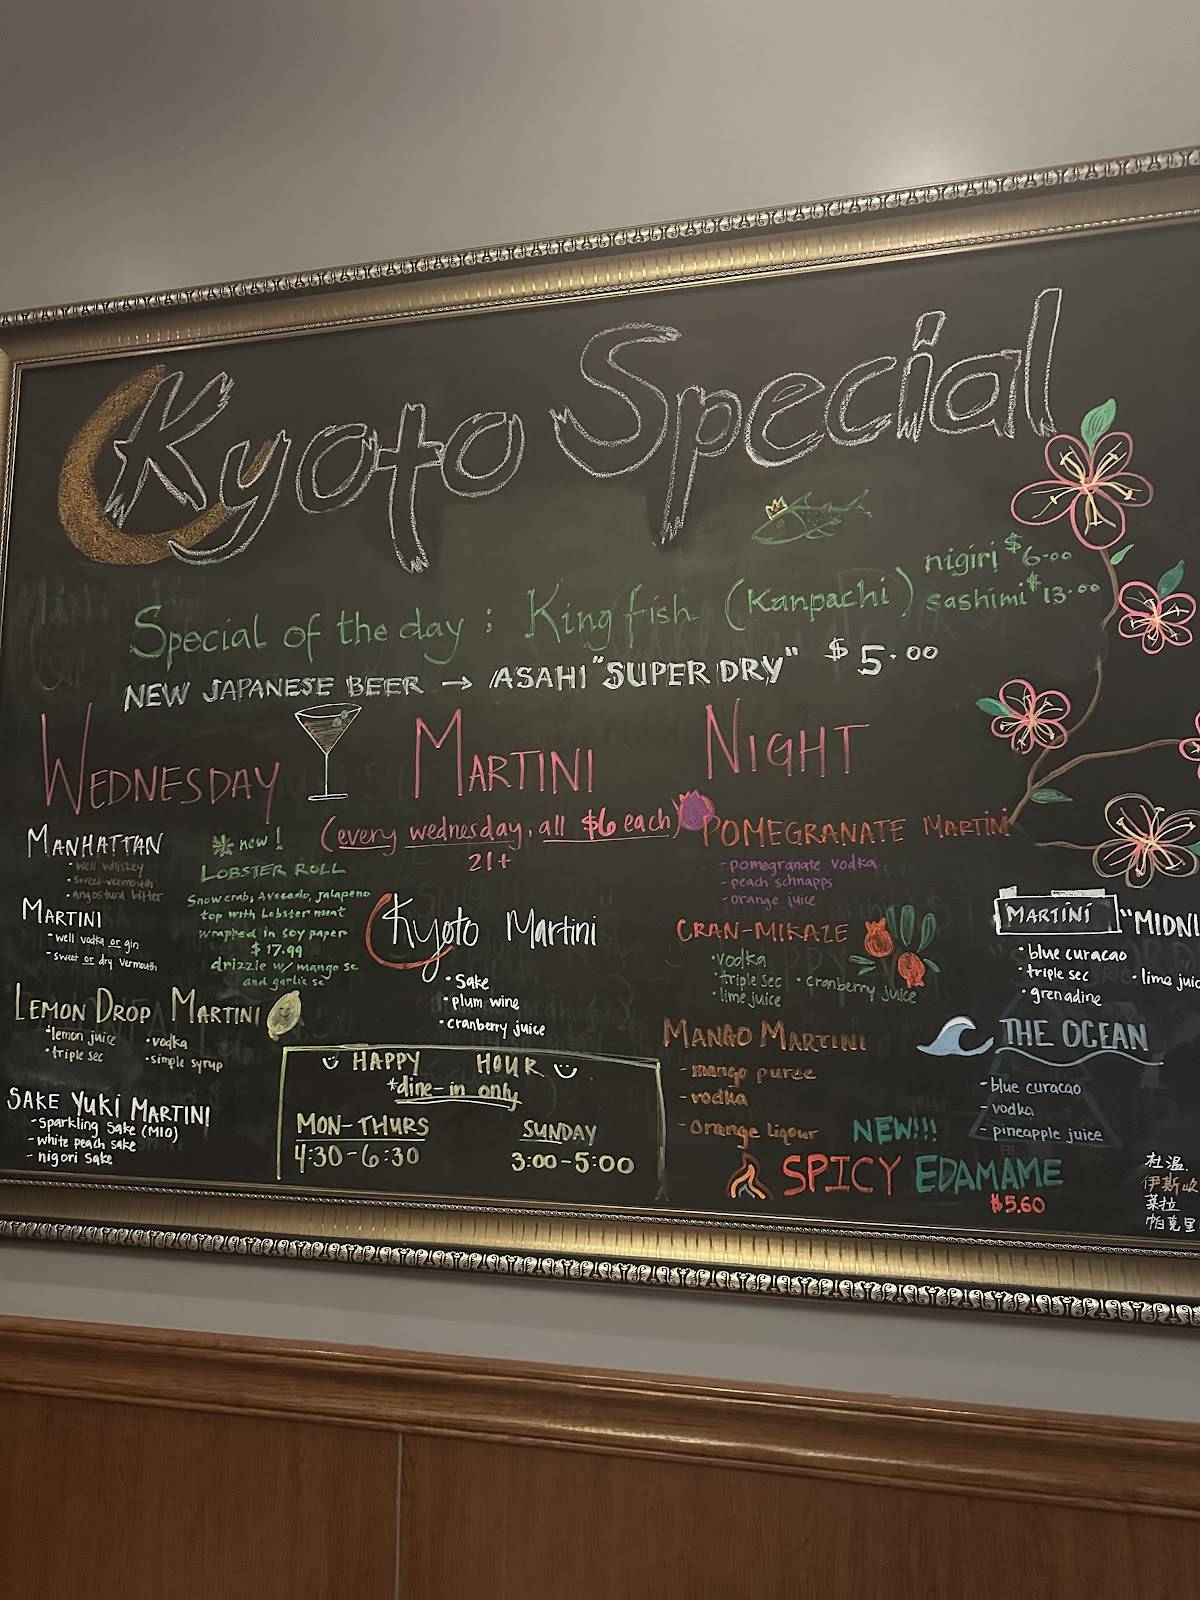 Kyoto Special
Special of the day : King fish (Kanpachi)
nigiri $6.00
sashimi $13.00
NEW JAPANESE BEER → ASAHI "SUPER DRY" $5.00
WEDNESDAY MARTINI NIGHT
(every wednesday, all $6 each)
21+
MANHATTAN
• well whiskey
• sweet vermouth
• Angostura bitter
MARTINI
- well vodka or gin
- sweet or dry vermouth
LEMON DROP MARTINI
• lemon juice • vodka
• triple sec • simple syrup
SAKE YUKI MARTINI
- sparkling sake (MIO)
- white peach sake
- nigori sake
new!
LOBSTER ROLL
Snowcrab, Avocado, jalapeno
top with Lobster meat
wrapped in soy paper
$17.99
drizzle w/ mango sc
and garlic sc
Kyoto Martini
• Sake
• plum wine
• cranberry juice
HAPPY HOUR
*dine-in only
MON-THURS
4:30-6:30
SUNDAY
3:00-5:00
POMEGRANATE MARTINI
- pomegranate vodka
- peach schnapps
- orange juice
CRAN-MIKAZE
• vodka
• triple sec • cranberry juice
• lime juice
MANGO MARTINI
- mango puree
- vodka
- orange liqour
MARTINI "MIDNI
• blue curacao
• triple sec • lime juic
• grenadine
THE OCEAN
- blue curacao
- vodka
- pineapple juice
NEW!!!
SPICY EDAMAME
$5.60
杜温
伊斯
葉拉
帕克里